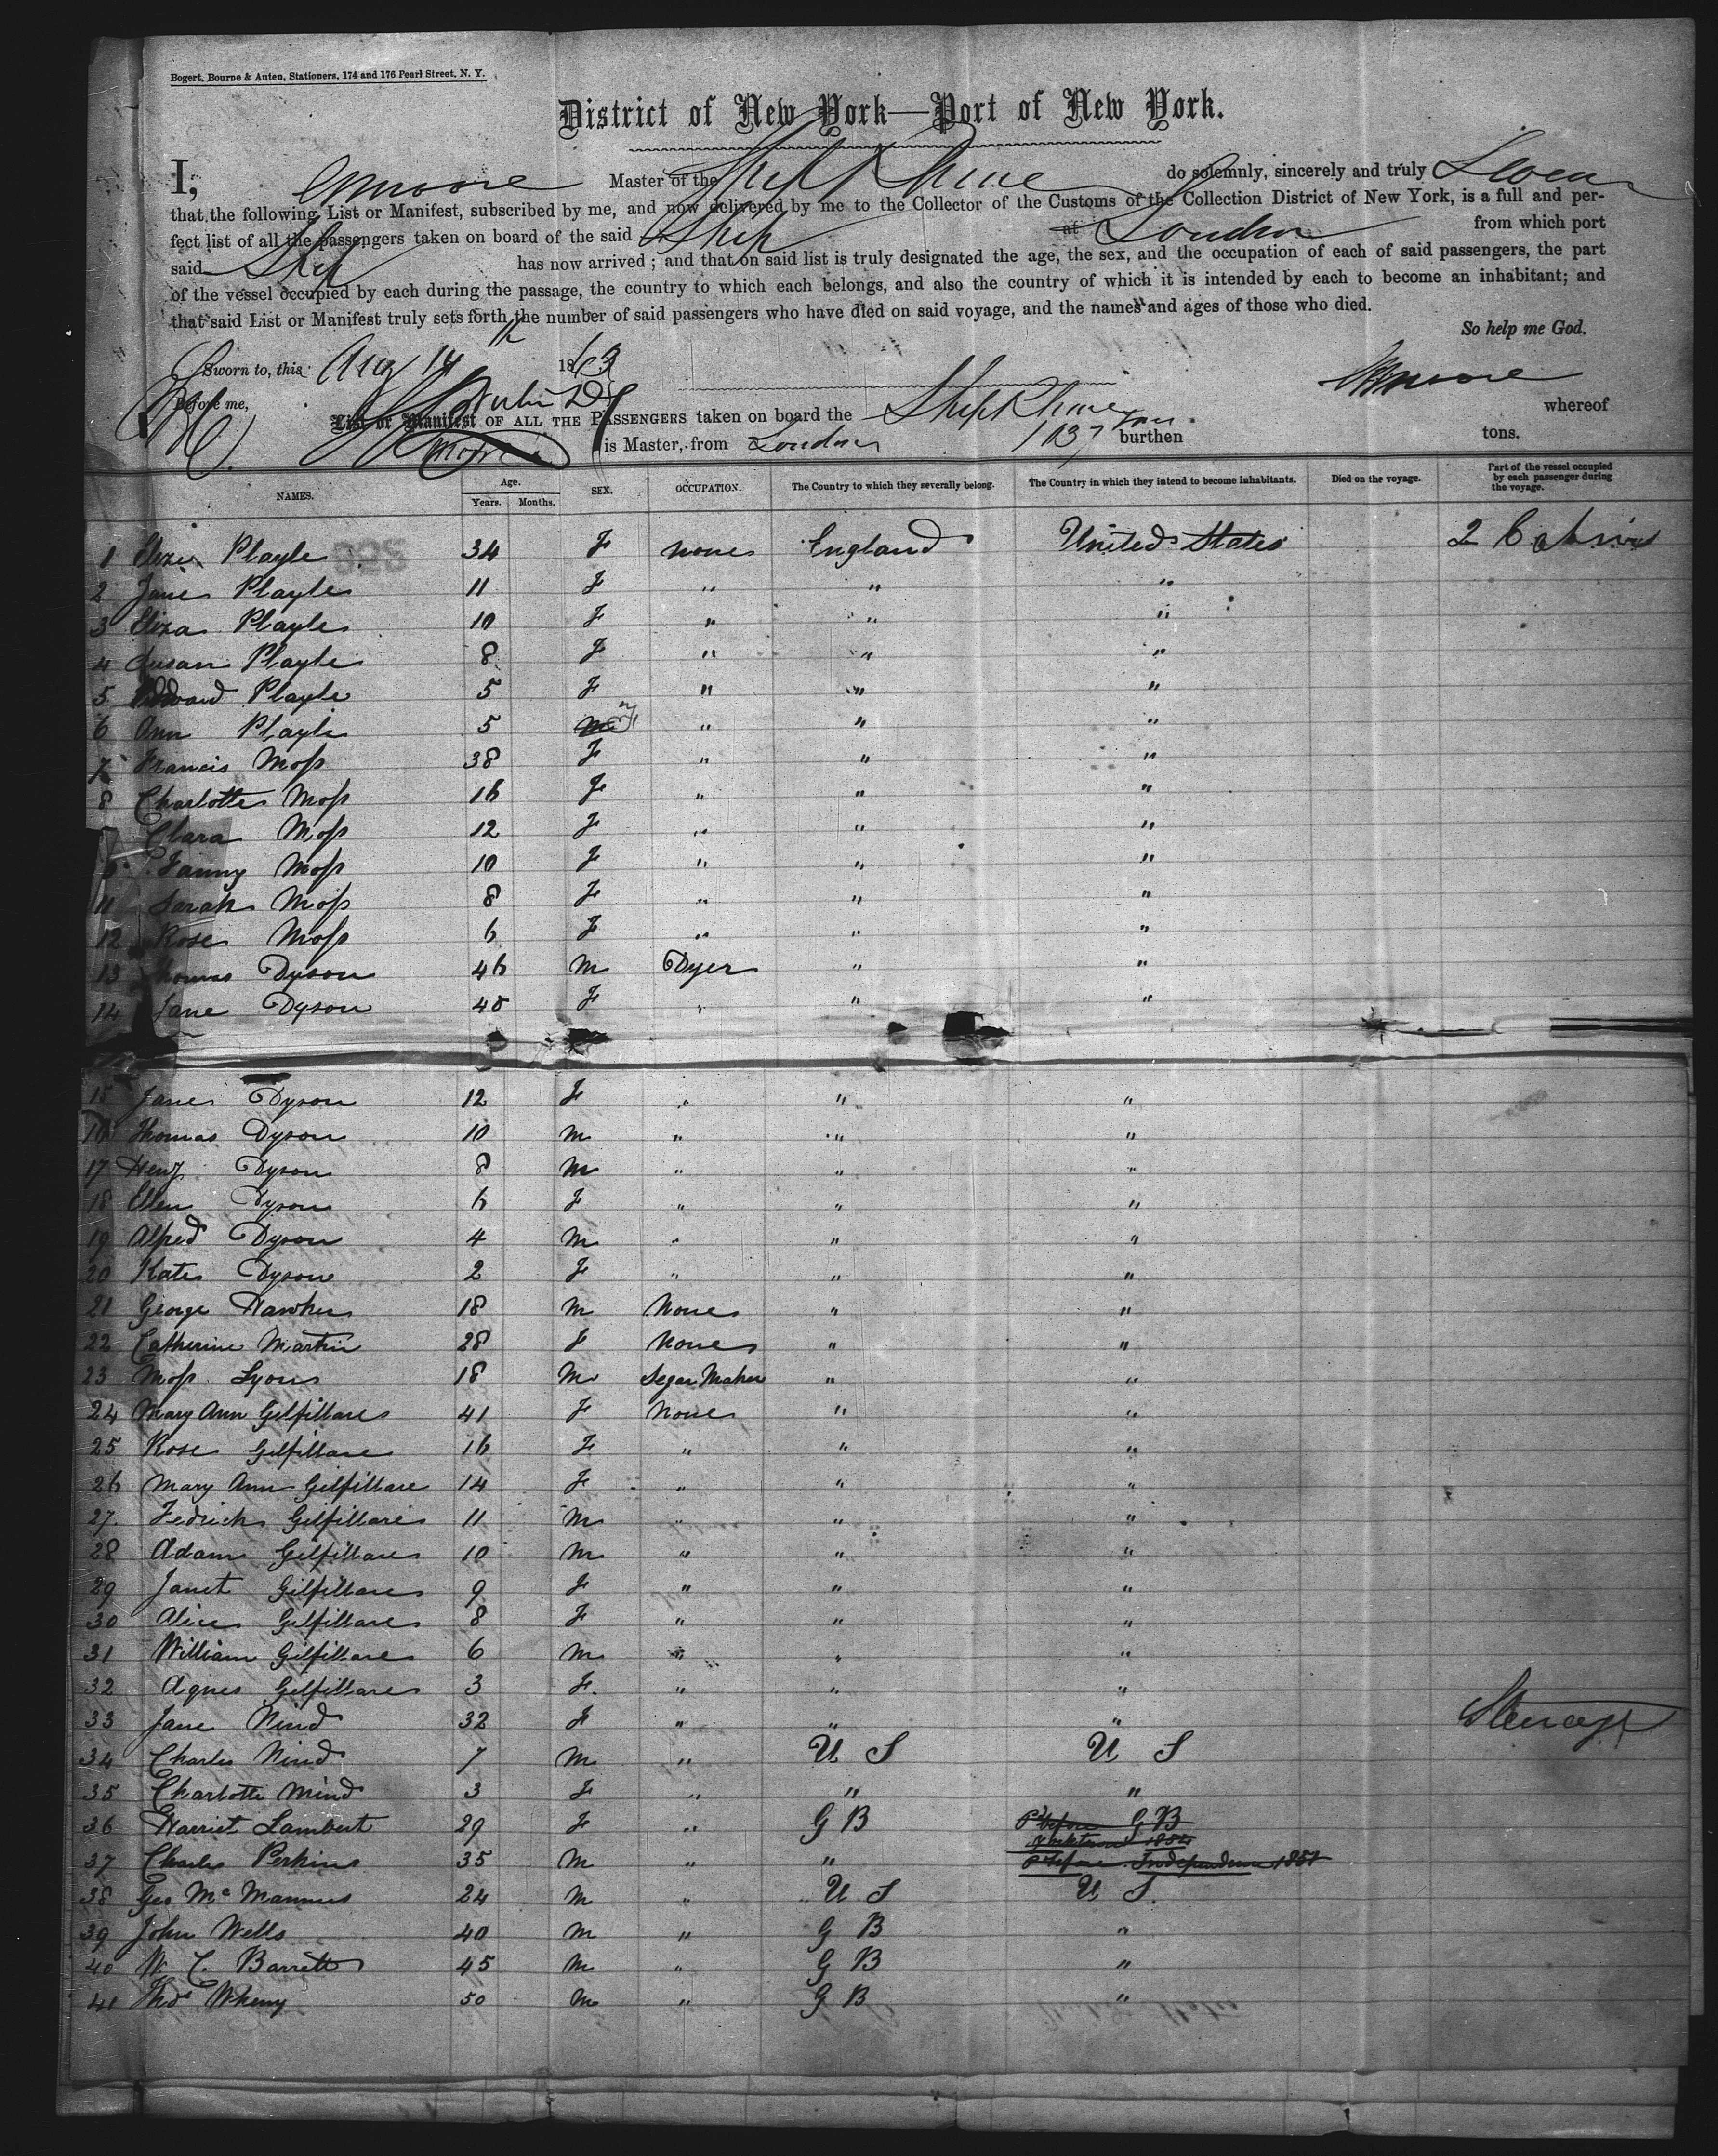 Bogert, Bourne & Auten, Stationers, 174 and 176 Pearl Street, N. Y.
District of New York—Port of New York.
I, Moore Master of the Ship Rhine do solemnly, sincerely and truly Swear
that the following List or Manifest, subscribed by me, and now delivered by me to the Collector of the Customs of the Collection District of New York, is a full and per-
fect list of all the passengers taken on board of the said Ship at London from which port
said Ship has now arrived ; and that on said list is truly designated the age, the sex, and the occupation of each of said passengers, the part
of the vessel occupied by each during the passage, the country to which each belongs, and also the country of which it is intended by each to become an inhabitant; and
that said List or Manifest truly sets forth the number of said passengers who have died on said voyage, and the names and ages of those who died.
So help me God.
Sworn to, this Aug 14th 1863 Moore
Before me,
List or Manifest OF ALL THE PASSENGERS taken on board the Ship Rhine whereof
Moore is Master, from London burthen 1137 tons.
NAMES. Age. Years. Months. SEX. OCCUPATION. The Country to which they severally belong. The Country in which they intend to become inhabitants. Died on the voyage. Part of the vessel occupied by each passenger during the voyage.
1 Eliza Playle 34 F none England United States 2 Cabin
2 Jane Playle 11 F " " "
3 Eliza Playle 10 F " " "
4 Susan Playle 8 F " " "
5 Edward Playle 5 F " " "
6 Ann Playle 5 m " " "
7 Francis Moss 38 F " " "
8 Charlotte Moss 16 F " " "
Clara Moss 12 F " " "
Fanny Moss 10 F " " "
11 Sarah Moss 8 F " " "
12 Rose Moss 6 F " " "
13 Thomas Dyson 46 m Dyer " "
14 Jane Dyson 48 F " " "
15 Jane Dyson 12 F " " "
16 Thomas Dyson 10 m " " "
17 Heny Dyson 8 m " " "
18 Ellen Dyson 6 F " " "
19 Alfred Dyson 4 m " " "
20 Kate Dyson 2 F " " "
21 George Hawkes 18 m None " "
22 Catherine Martin 28 F None " "
23 Moss Lyons 18 m Segar Maker " "
24 Mary Ann Gilfillare 41 F None " "
25 Rose Gilfillare 16 F " " "
26 Mary Ann Gilfillare 14 F " " "
27 Fedrick Gilfillare 11 m " " "
28 Adam Gilfillare 10 m " " "
29 Janet Gilfillare 9 F " " "
30 Alice Gilfillare 8 F " " "
31 William Gilfillare 6 m " " "
32 Agnes Gilfillare 3 F " " "
33 Jane Nind 32 F " " " Steerage
34 Charles Nind 7 m " U S U S
35 Charlotte Nind 3 F " " "
36 Harriet Lambert 29 F " G B G B
37 Charles Perkins 35 m " " Independence 1851
38 Geo McMannus 24 m " U S U S.
39 John Wells 40 m " G B "
40 W C. Barrett 45 m " G B "
41 Thos Wheny 50 m " G B "